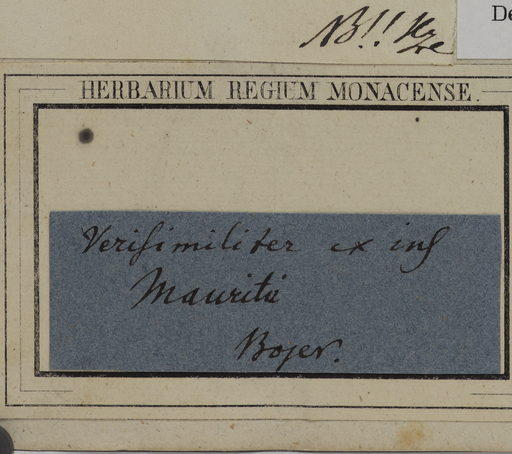 NB!!
De
HERBARIUM REGIUM MONACENSE.
Verisimiliter ex ins
Mauritii
Bojer.